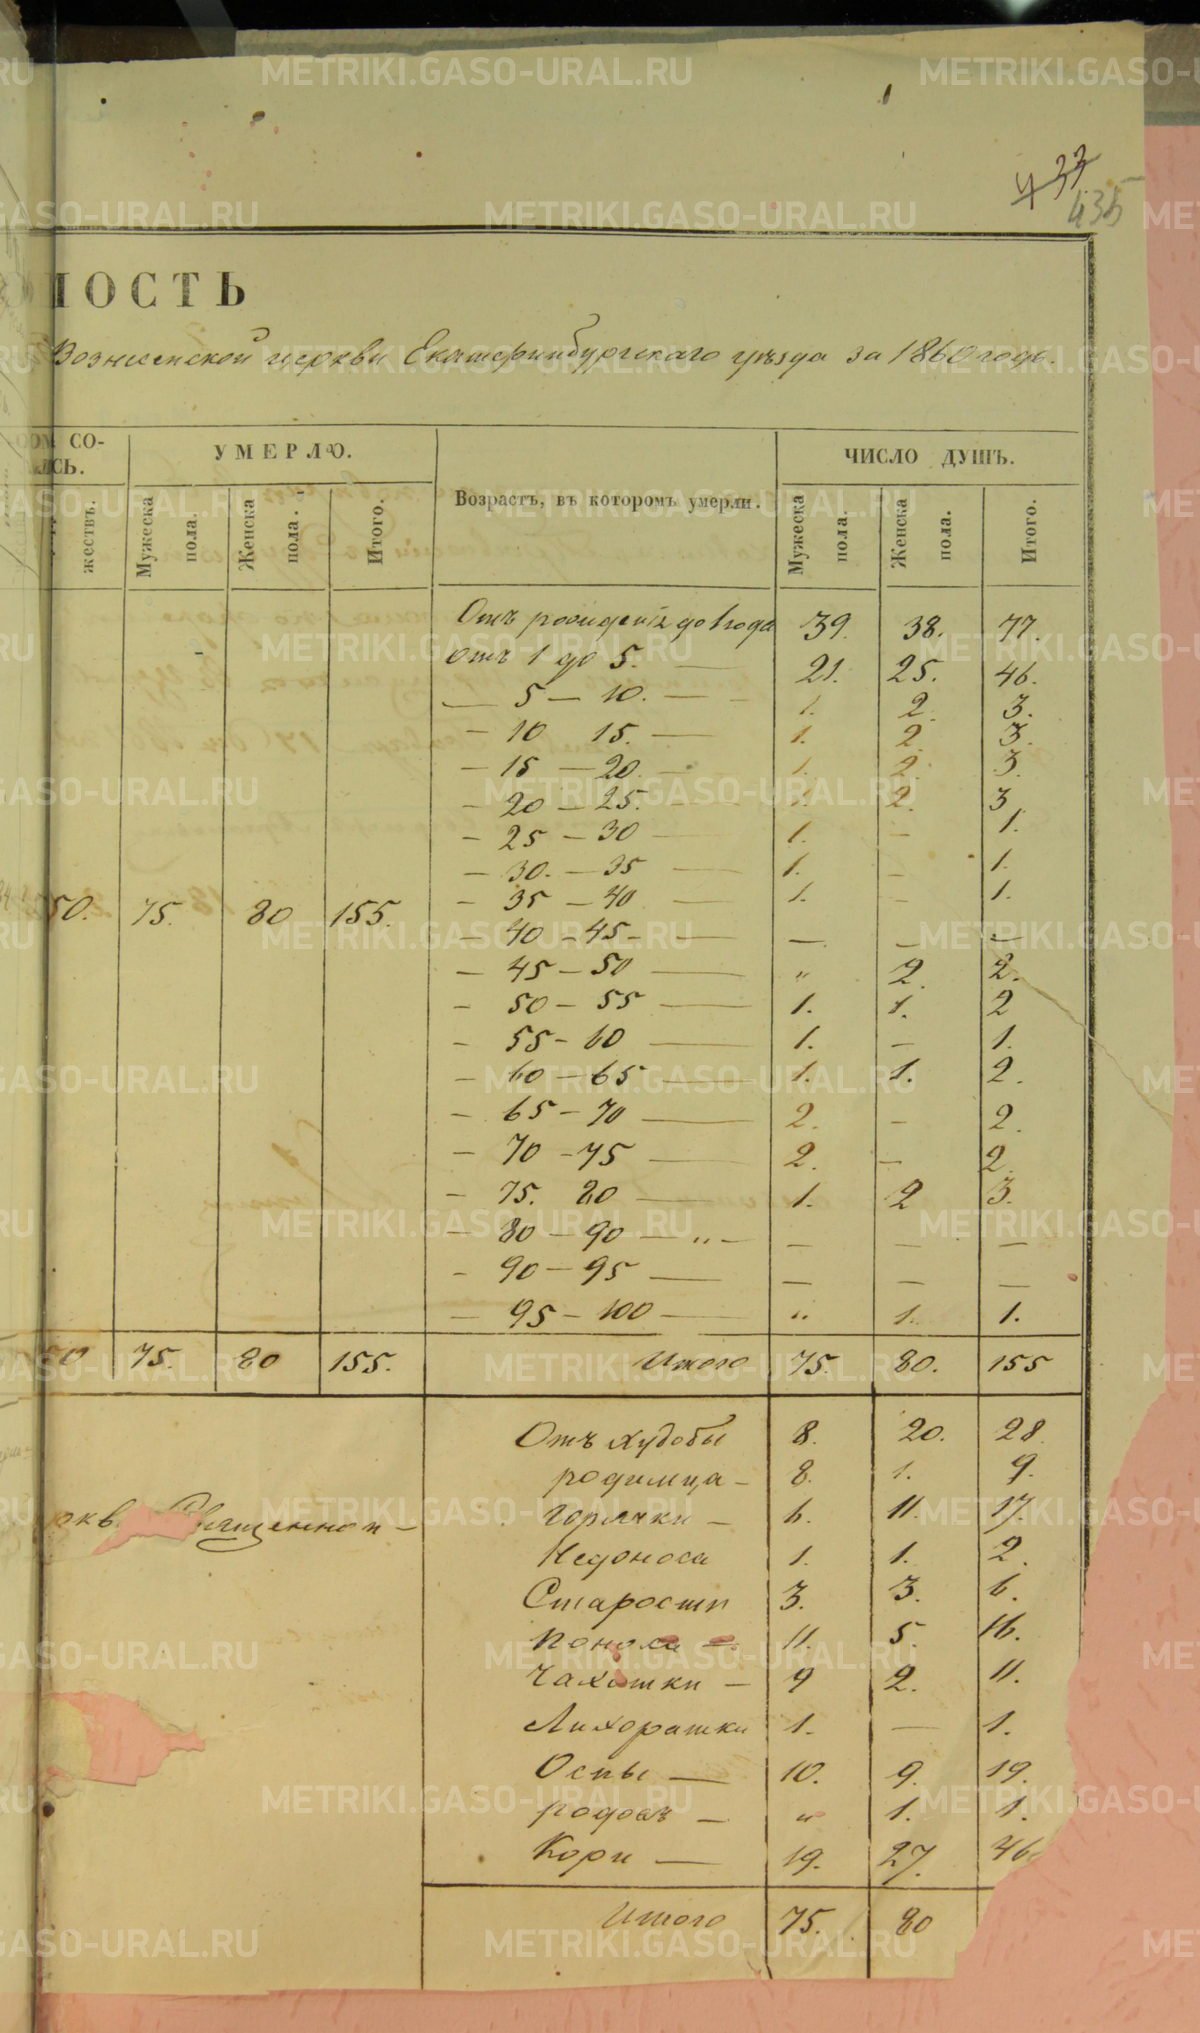 433
435
ОСТЬ
Вознесенской церкви Екатеринбургскаго уѣзда за 1860 годъ.
СО-
СЬ.
УМЕРЛО.
ЧИСЛО ДУШЪ.
жествъ.
Мужеска пола.
Женска пола.
Итого.
Возрастъ, въ которомъ умерли.
Мужеска пола.
Женска пола.
Итого.
Отъ рожденія до 1 года 39. 38. 77.
отъ 1 до 5. — 21. 25. 46.
— 5 — 10. — 1. 2. 3.
— 10 15. — 1. 2. 3.
— 15 — 20. — 1. 2. 3.
— 20 — 25. — 1. 2. 3
— 25 — 30 — 1. — 1.
— 30. — 35 — 1. — 1.
— 35 — 40 — 1. — 1.
50. 75. 80 155.
— 40 — 45 — — — —
— 45 — 50 — „ 2. 2.
— 50 — 55 — 1. 1. 2
— 55 — 60 — 1. — 1.
— 60 — 65 — 1. 1. 2.
— 65 — 70 — 2. — 2.
— 70 — 75 — 2. — 2.
— 75. 80 — 1. 2 3.
— 80 — 90 — „ — — — —
— 90 — 95 — — — —
— 95 — 100 — „ 1. 1.
50 75. 80 155. Итого 75. 80. 155
Отъ худобы 8. 20. 28.
родимца — 8. 1. 9.
горячки — 6. 11. 17.
Недоноса 1. 1. 2.
Старости 3. 3. 6.
Поноса — 11. 5. 16.
Чахотки — 9 2. 11.
Лихоратки 1. — 1.
Оспы — 10. 9. 19.
родовъ — „ 1. 1.
Кори — 19. 27. 46
Итого 75. 80
METRIKI.GASO-URAL.RU